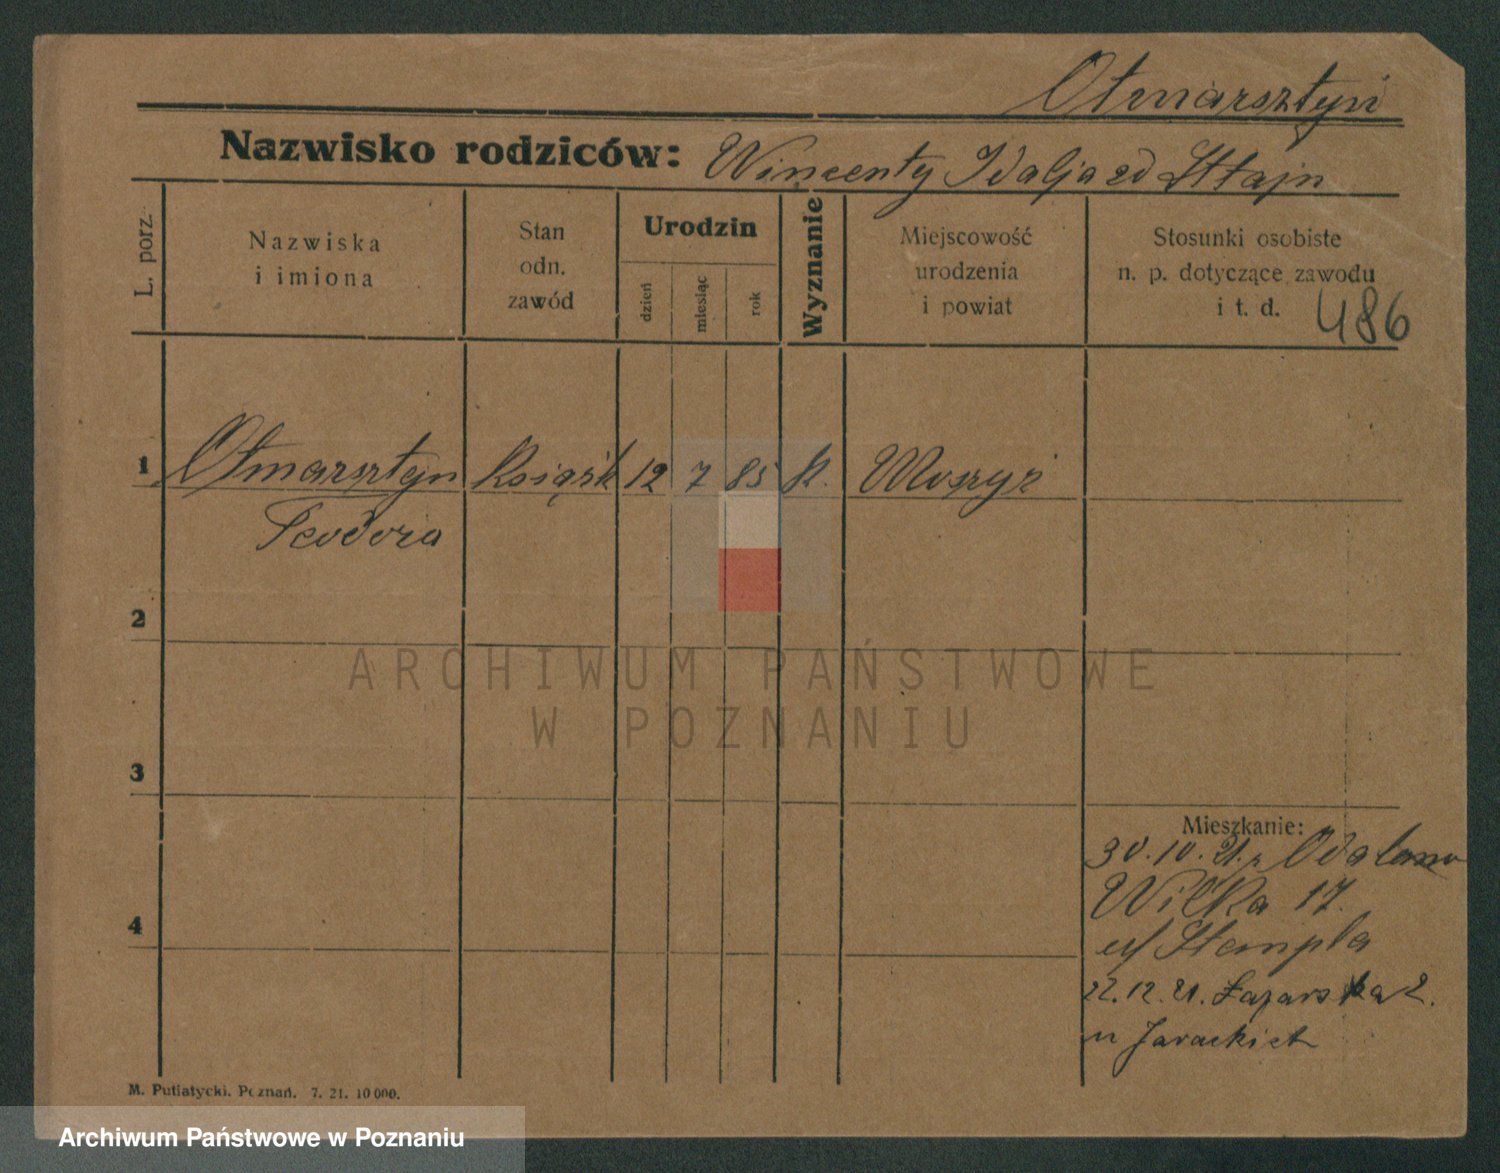 Otmarsztyn
Nazwisko rodziców: Wincenty Idalja zd Sztajn
L. porz.
Nazwiska
i imiona
Stan
odn.
zawód
Urodzin
dzień
miesiąc
rok
Wyznanie
Miejscowość
urodzenia
i powiat
Stosunki osobiste
n. p. dotyczące zawodu
i t. d.
486
1 Otmarsztyn Książk 12 7 85 k.
Teodora
2
ARCHIWUM PAŃSTWOWE
W POZNANIU
3
Mieszkanie:
30.10.21. z Odolanow
Wilka 17.
4
u/ Stempla
22.12.21. Łazarska 2.
u Jarackich
M. Putiatycki. Poznań. 7. 21. 10 000.
Archiwum Państwowe w Poznaniu